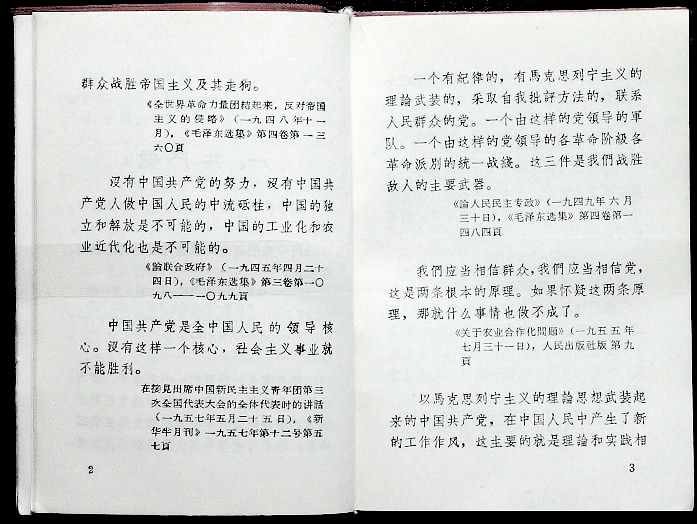 群众战胜帝国主义及其走狗。
《全世界革命力量团结起来，反对帝国
主义的侵略》（一九四八年十一
月），《毛泽东选集》第四卷第一三
六〇頁
沒有中国共产党的努力，沒有中国共
产党人做中国人民的中流砥柱，中国的独
立和解放是不可能的，中国的工业化和农
业近代化也是不可能的。
《論联合政府》（一九四五年四月二十
四日），《毛泽东选集》第三卷第一〇
九八——一〇九九頁
中国共产党是全中国人民的领导核
心。沒有这样一个核心，社会主义事业就
不能胜利。
在接見出席中国新民主主义青年团第三
次全国代表大会的全体代表时的讲话
（一九五七年五月二十五日），《新
华半月刊》一九五七年第十二号第五
七頁
2
一个有紀律的，有馬克思列宁主义的
理論武装的，采取自我批評方法的，联系
人民群众的党。一个由这样的党领导的軍
队。一个由这样的党领导的各革命阶級各
革命派別的統一战綫。这三件是我們战胜
敌人的主要武器。
《論人民民主专政》（一九四九年六月
三十日），《毛泽东选集》第四卷第一
四八四頁
我們应当相信群众，我們应当相信党，
这是两条根本的原理。如果怀疑这两条原
理，那就什么事情也做不成了。
《关于农业合作化問題》（一九五五年
七月三十一日），人民出版社版第九
頁
以馬克思列宁主义的理論思想武装起
来的中国共产党，在中国人民中产生了新
的工作作风，这主要的就是理論和实践相
3